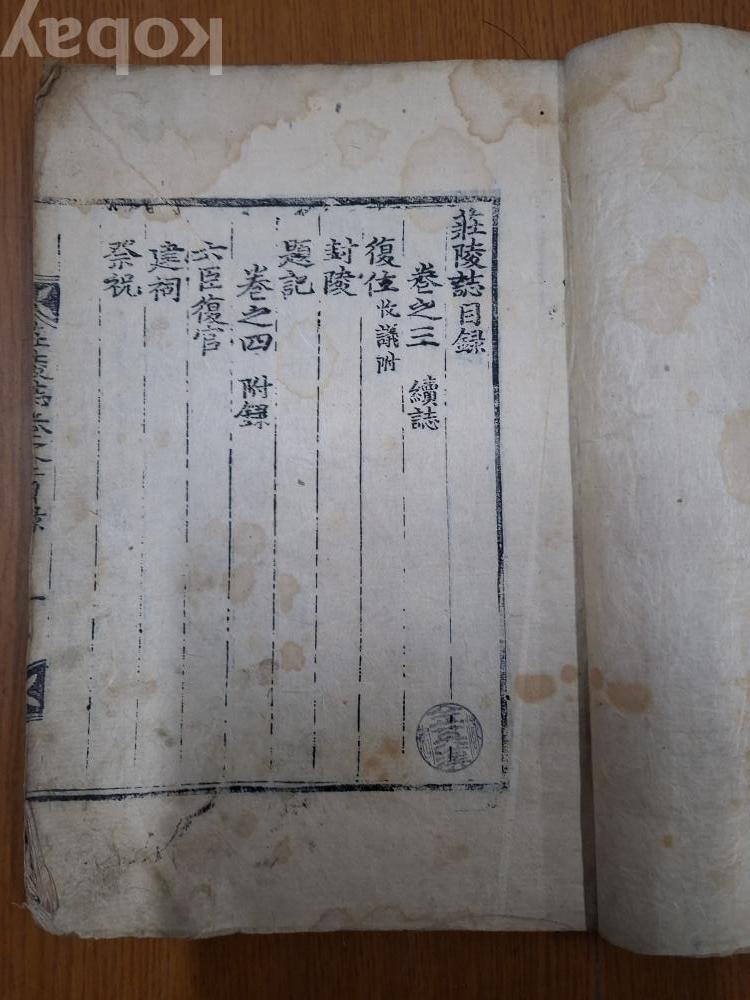 kobay
莊陵誌目録
卷之三 續誌
復位 收議附
封陵
題記
卷之四 附録
六臣復官
建祠
祭祝
莊陵誌卷之三目録 一